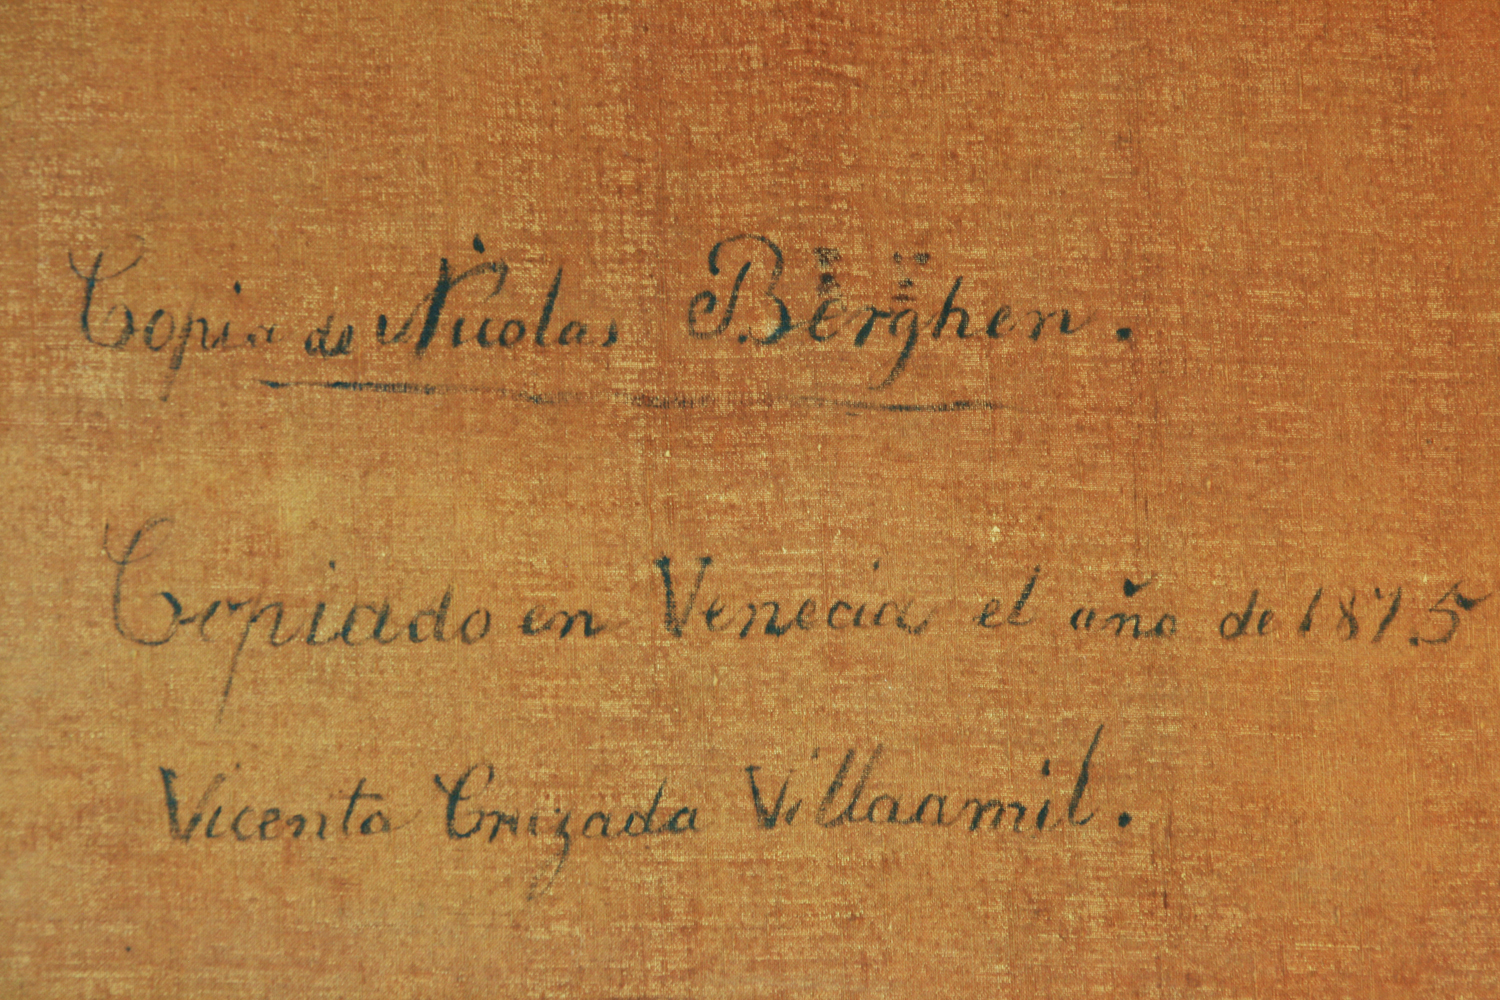 Copia de Nicolas Berghen.
Copiado en Venecia el año de 1875
Vicenta Cruzada Villaamil.